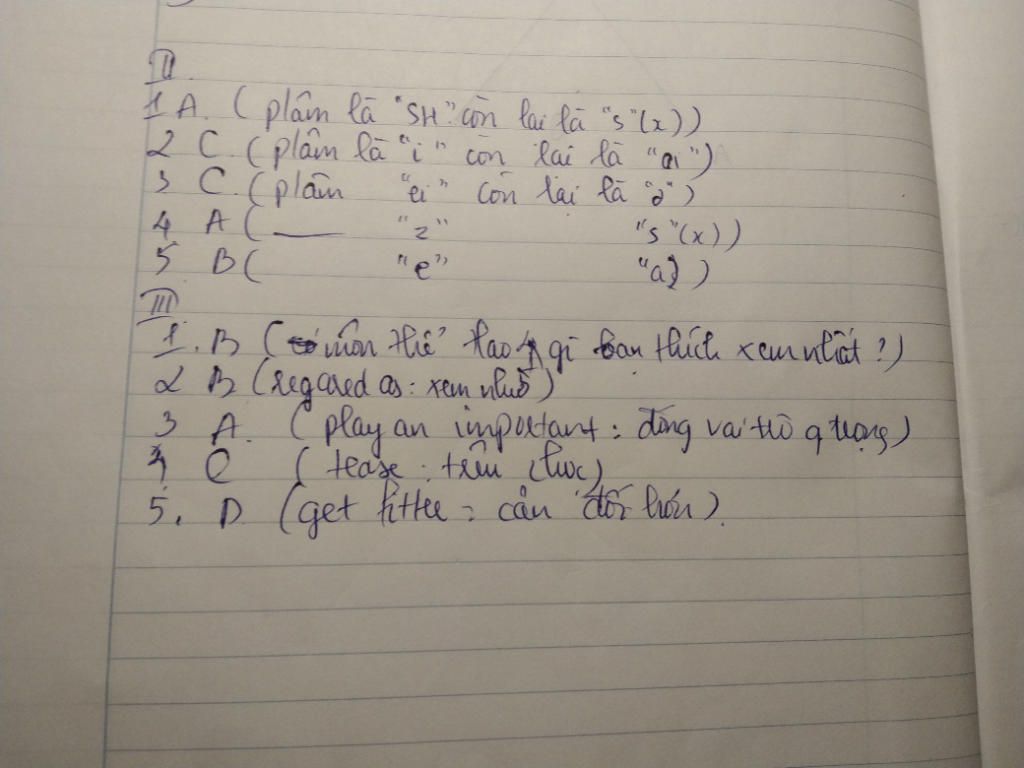 II
1 A. ( p/âm là "SH" còn lại là "s" (x))
2 C. ( p/âm là "i" còn lại là "ai")
3 C. ( p/âm "ei" còn lại là "ə")
4 A ( ___ "z" "s" (x))
5 B ( "e" )
III
1. B ( môn thể thao gì bạn thích xem nhất?)
2 B (regared as: xem như)
3 A. ( play an important: đóng vai trò q trọng)
4 C ( tease: trêu chọc)
5. D (get fitter: cân đối hơn).